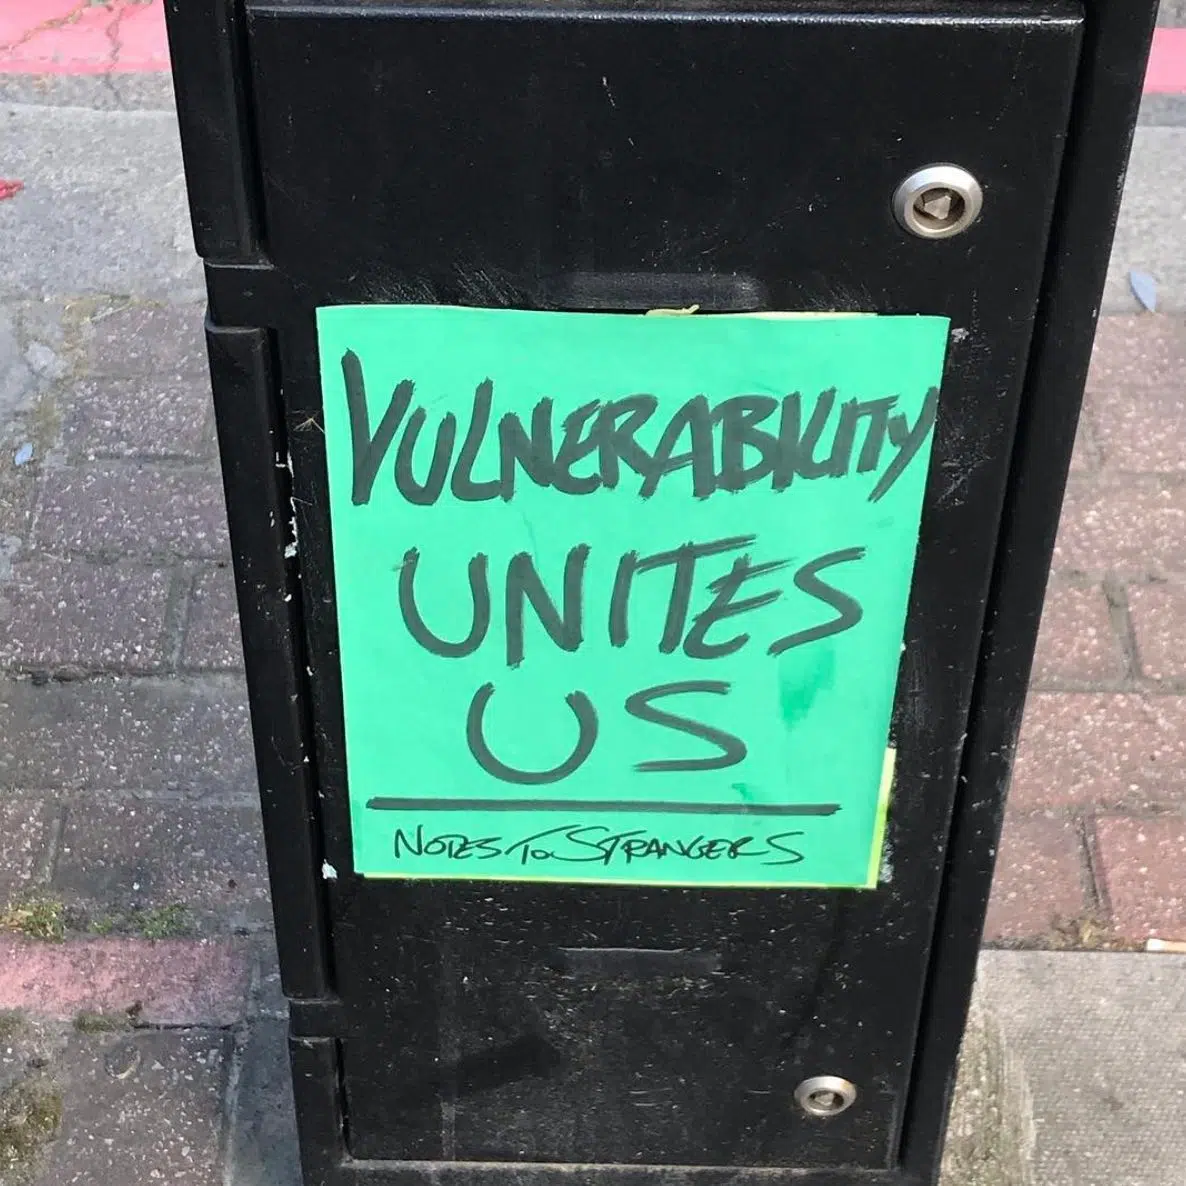 VULNERABILITY
UNITES
US
NOTES TO STRANGERS